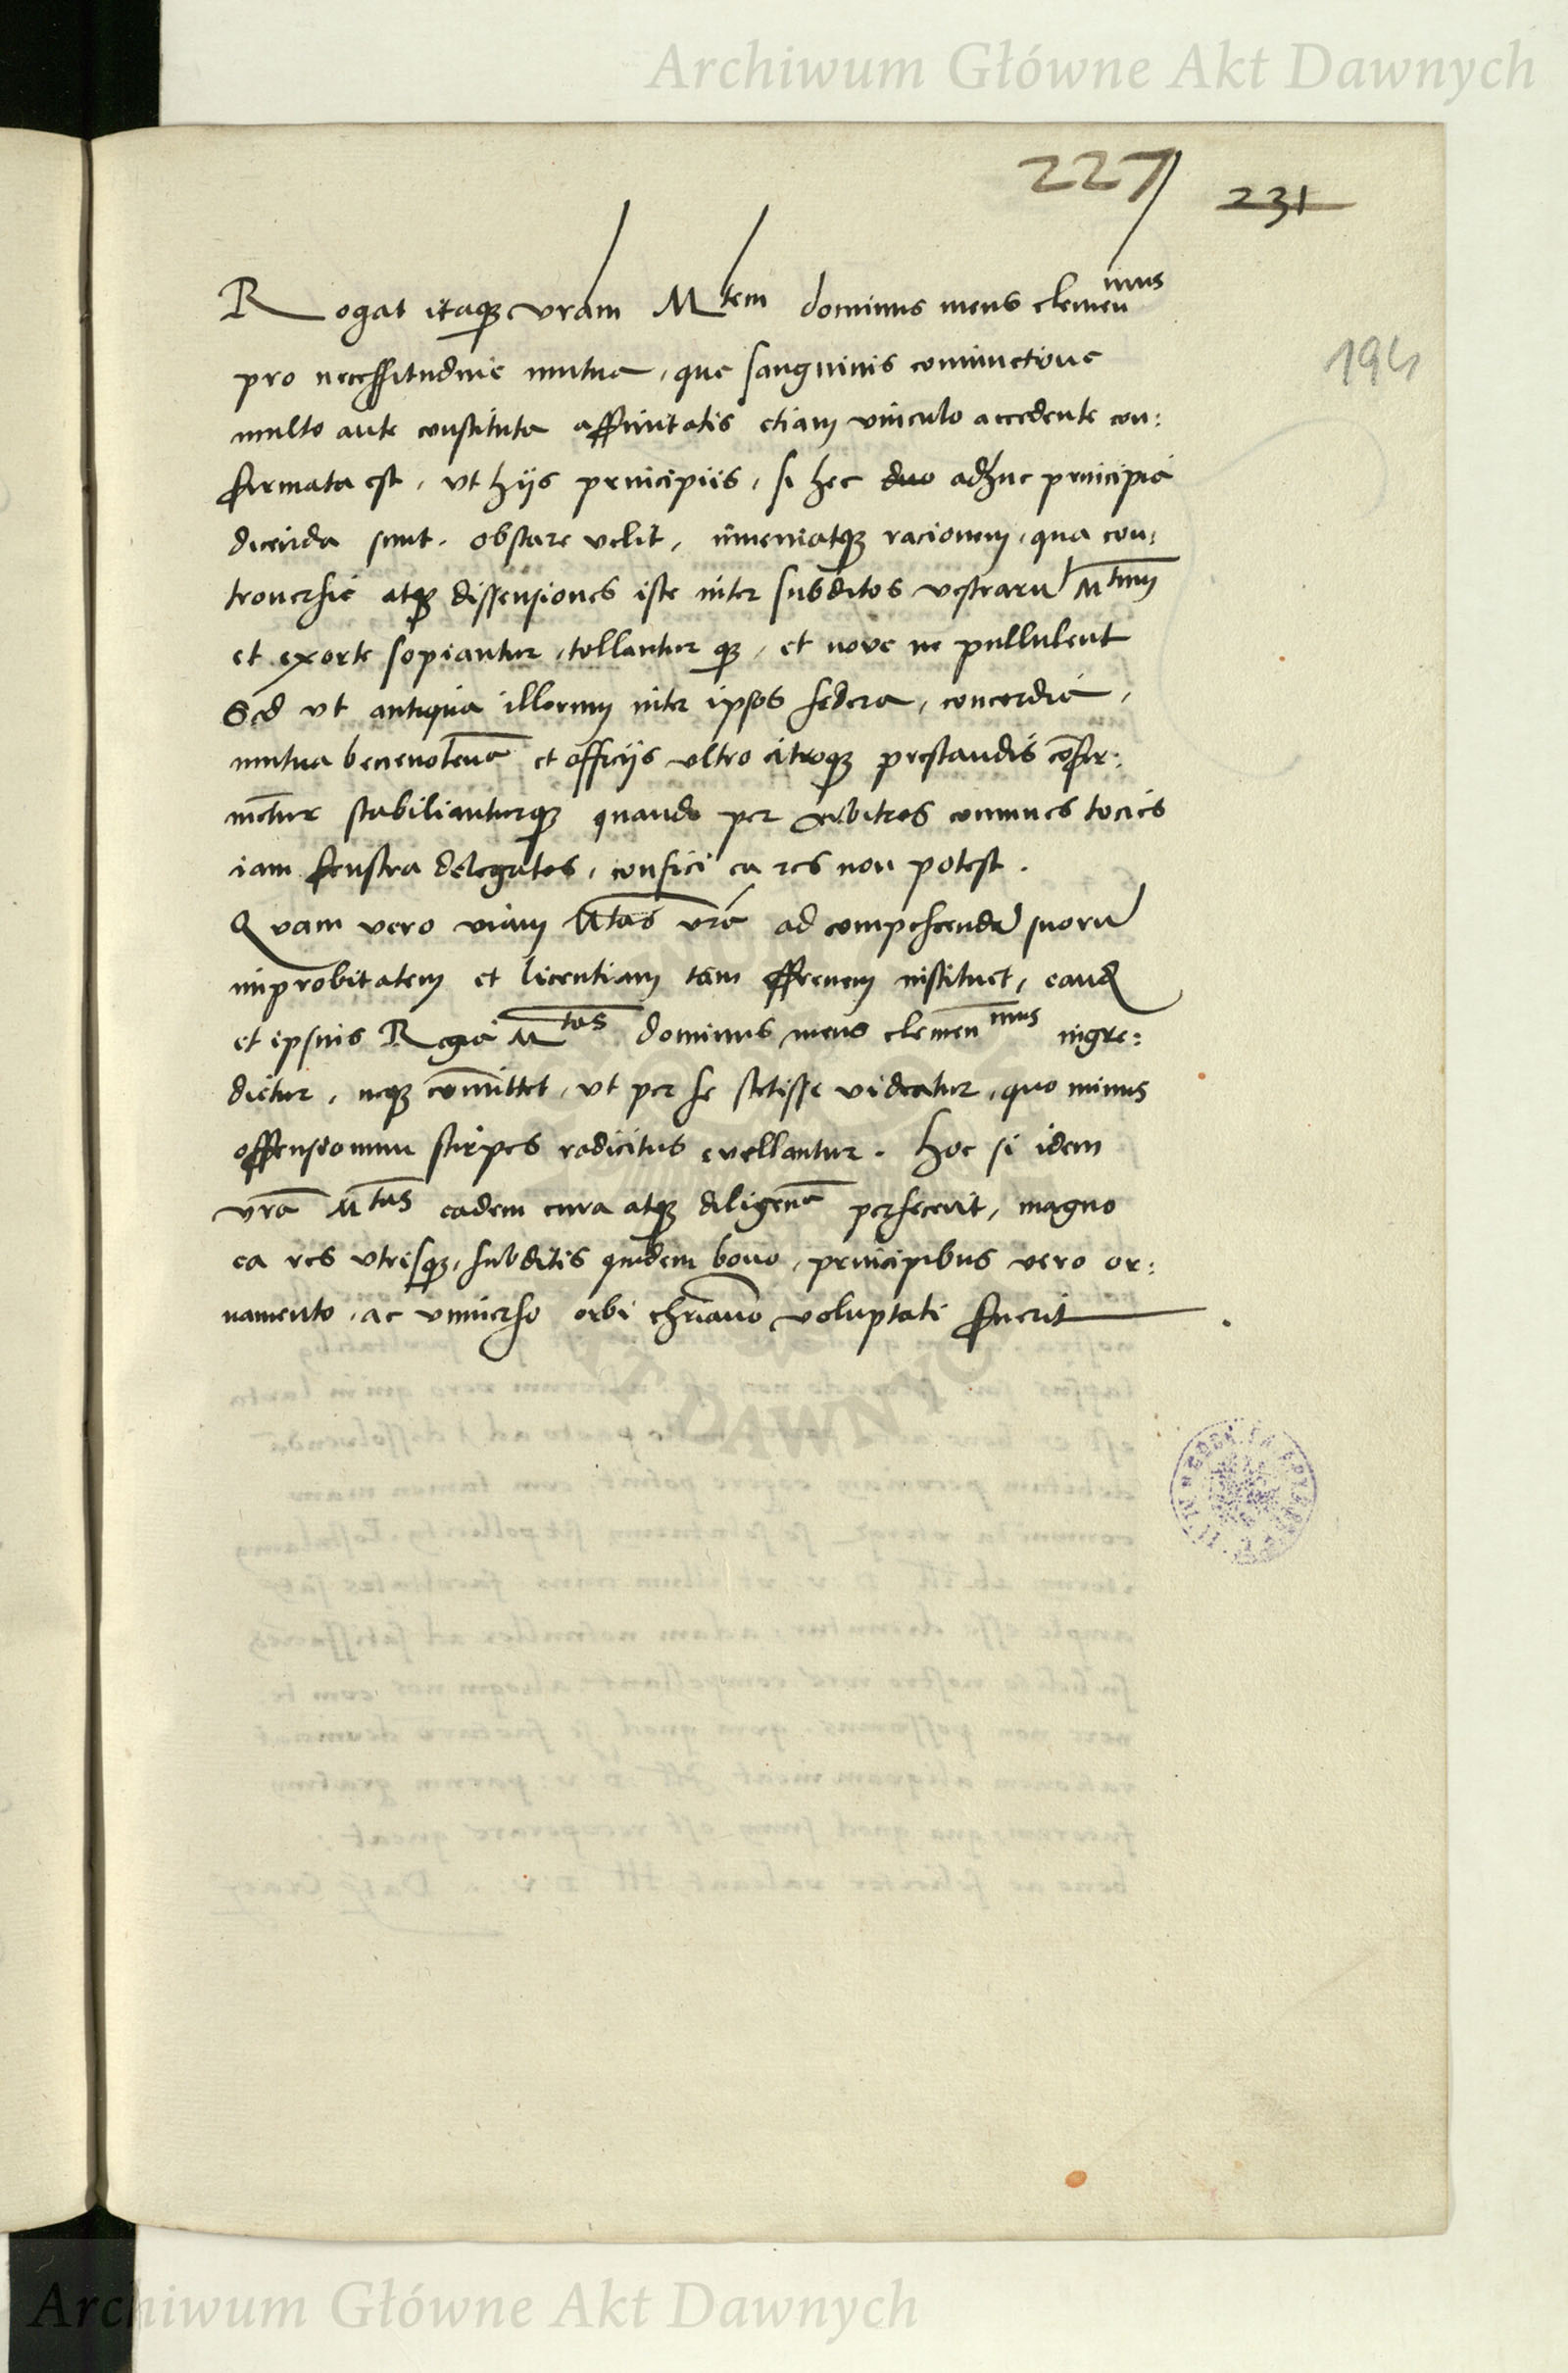 Archiwum Główne Akt Dawnych
227
231
194
Rogat itaq; vram Mtem dominus meus clemenmus
pro necessitudine mutua, que sanguinis coniunctione
multo ante constituta affinitatis etiam vinculo accedente con:
firmata est, vt hijs principiis, si hec duo adhuc principia
dicenda sunt, obstare velit, inueniatq; racionem, qua con:
trouersie atq; dissensiones iste inter subditos vestraru Mtum
et exorte sopiantur, tollantur q;, et noue ne pullulent
Sed vt antiqua illorum inter ipsos federa, concordia,
mutua beneuolena et officijs vltro citroq; prestandis cofir:
metur stabilianturq; quando per arbitros comunes tocies
iam frustra delegatos, confici ea res non potest.
Quam vero viam Mtas vra ad compescendā suoru
improbitatem et licentiam tam effrenem instituet, eand
et ipsius Regia Mtas dominus meus clemenmus ingre:
dietur, neq; comittet, vt per se stetisse videatur, quo minus
offensionum stirpes radicitus euellantur. Hoc si idem
vra Mtas eadem cura atq; diligena perfecerit, magno
ea res vtrisq;, subditis quidem bono, principibus vero or:
namento, ac vniuerso orbi chriano voluptati fuerit.
DAWNYC
Archiwum Główne Akt Dawnych